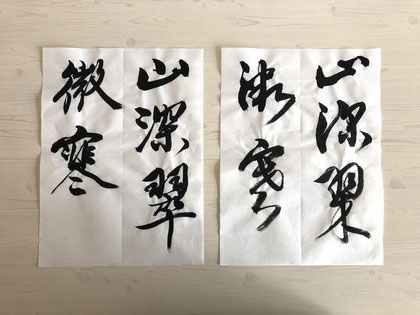 山深翠
微寒
山深翠
微寒